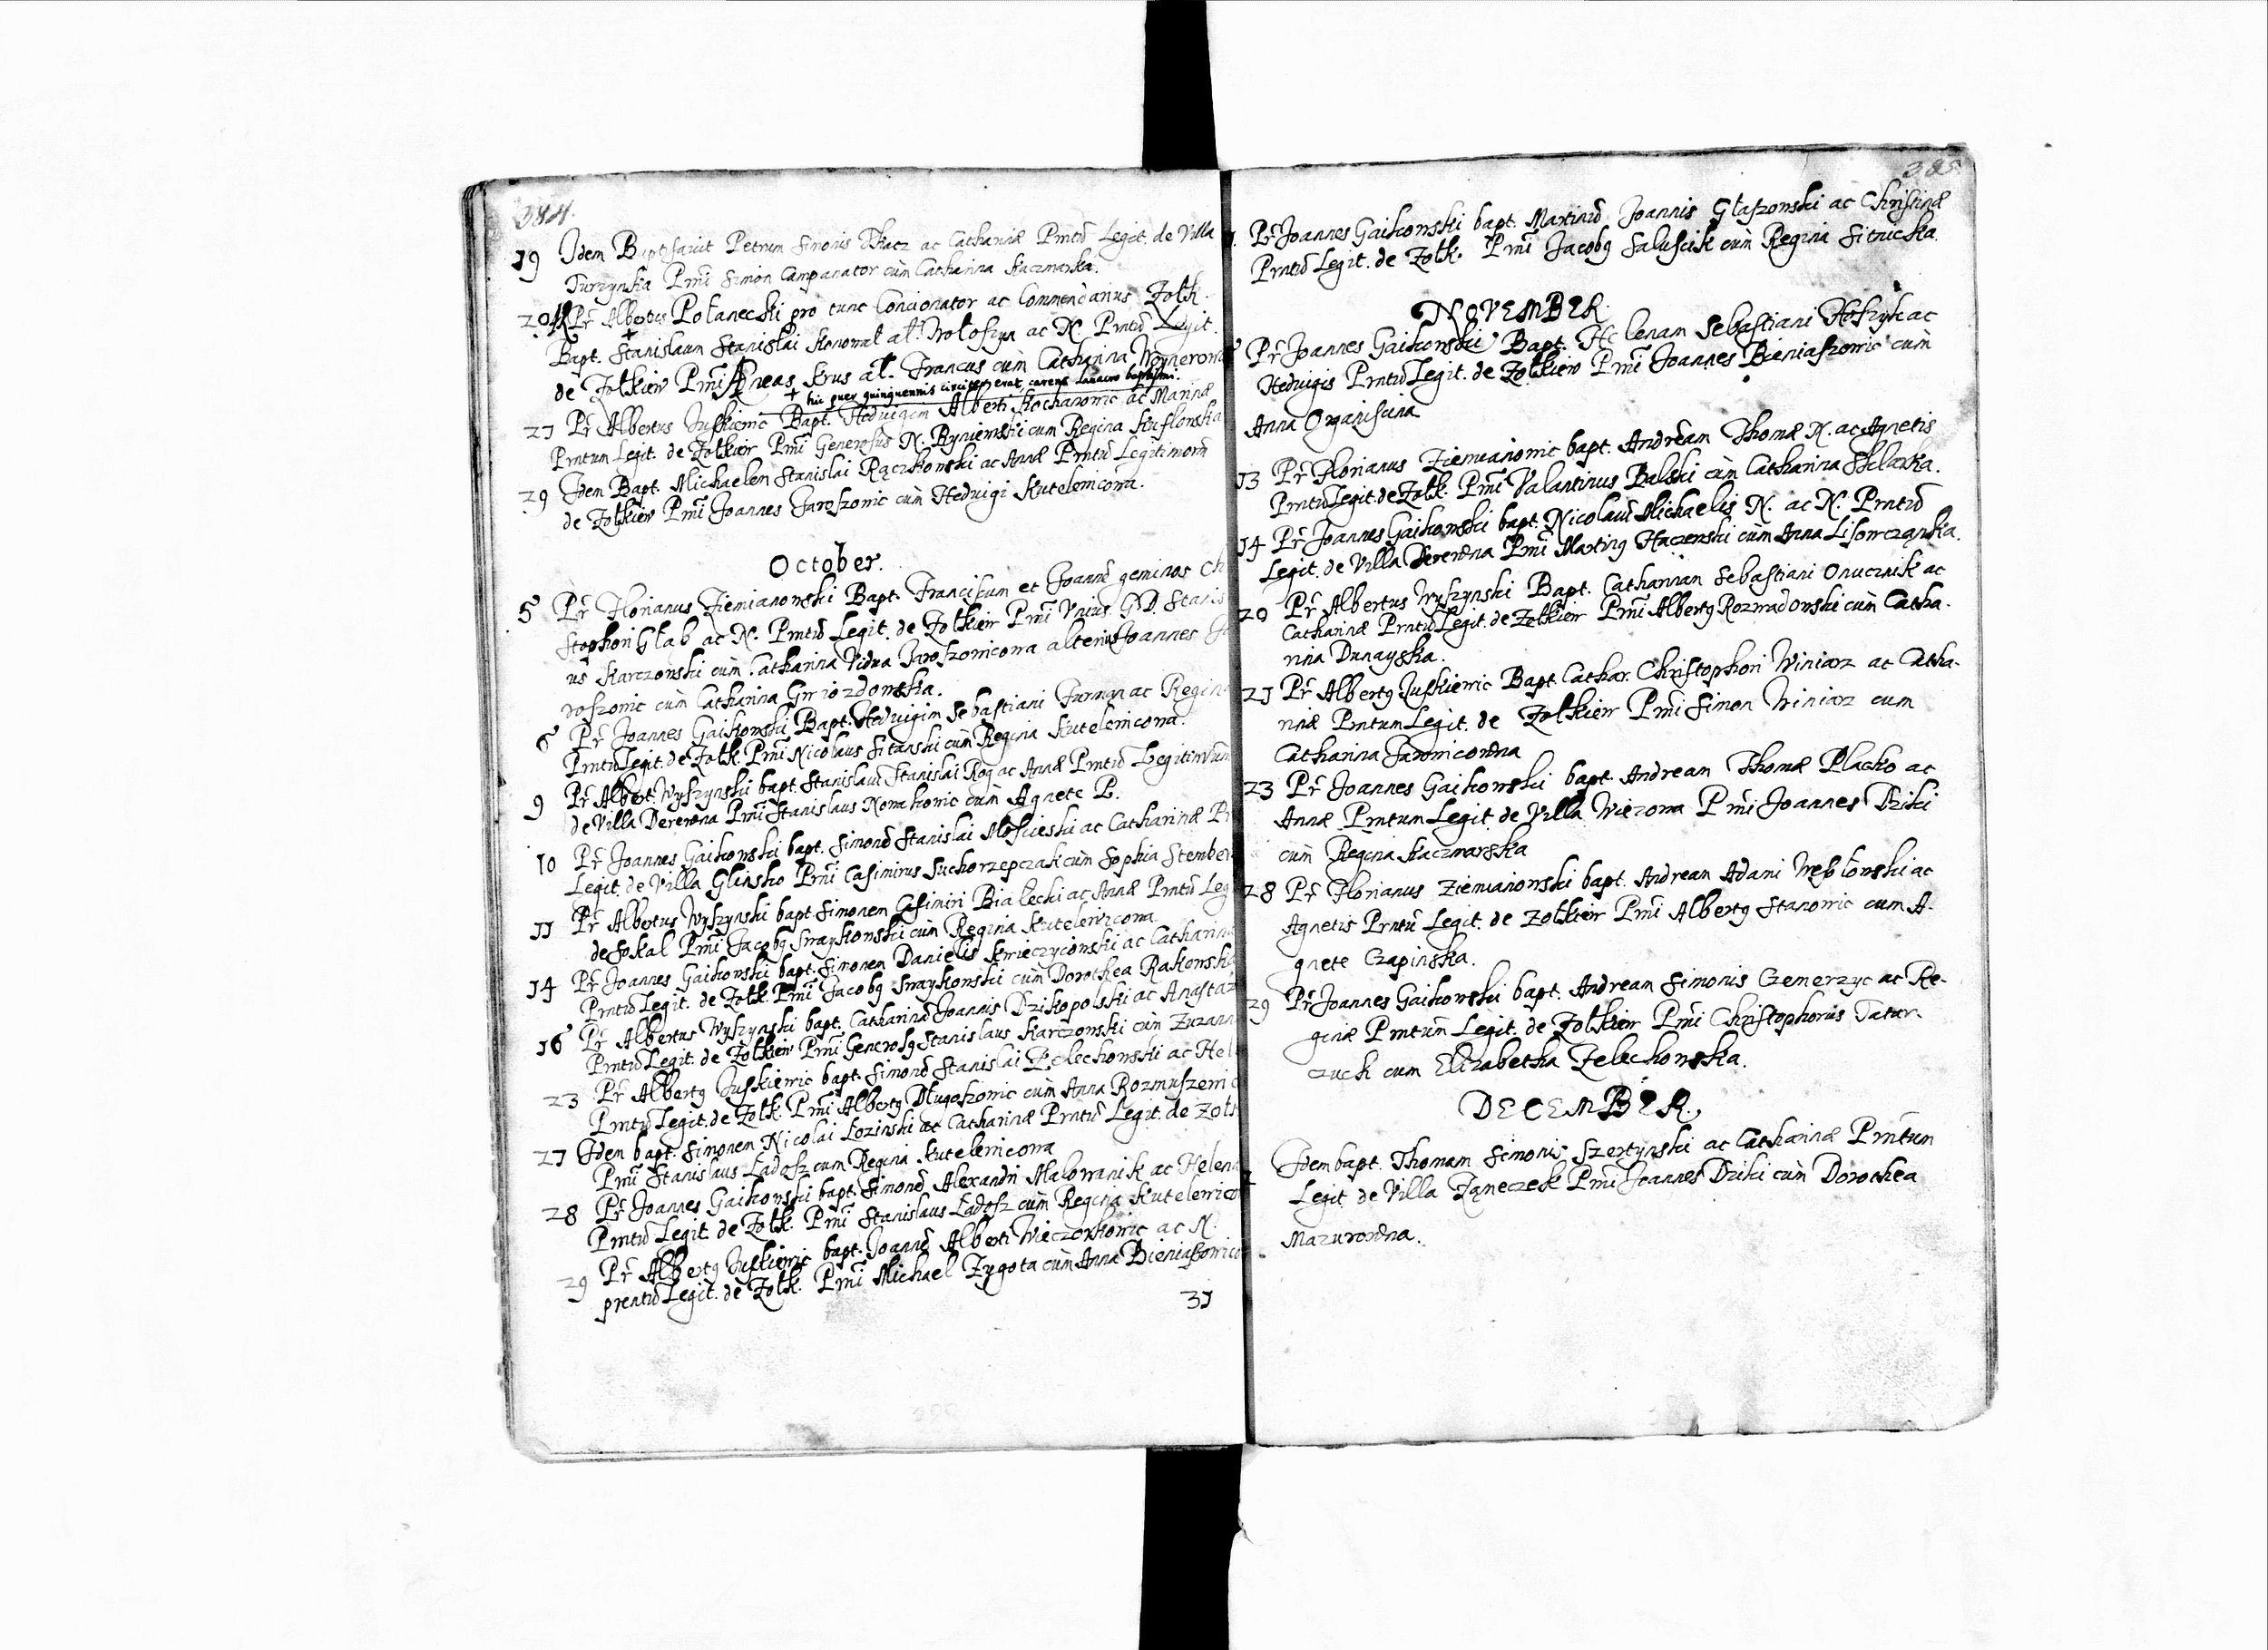 384.
19 Idem Baptisavit Petrum Simonis Tkacz ac Catharinæ Prntũ Legit. de Villa
Turzynka Prñi Simon Campanator cùm Catharina Kaczmarka.
20 Pr̃ Albertus Polanecki pro tunc Concionator ac Commendarius Zolk.
Bapt. Stanislaum Stanislai Konowal al: Woloszyn ac N. Prntũ Legit.
de Zolkiew Prñi Andreas Krus al. Francus cum Catharina
+ hic puer quinquennis circiter erat, carens lavacro baptismi.
27 Pr̃ Albertus Juskiewic Bapt. Hedvigem Alberti Kochanowic ac Marinæ
Prntum Legit. de Zolkiew Prñi Generosus N. Byniewski cum Regina
29 Idem Bapt. Michaelem Stanislai Rączkowski ac Annæ Prntũ Legitimorũ
de Zolkiew Prñi Joannes Jaroszowic cùm Hedvigi Kutelewicowa.
October.
5 Pr̃ Florianus Ziemianowski Bapt. Franciscum et Joannẽ geminos Ch
stophori Głab ac N. Prntũ Legit. de Zolkiew Prñi Unius G.D. Stanis
us Karczowski cùm Catharina Vidua Jaroszowicowa alterius Joannes Ja
roszowic cùm Catharina
6 Pr̃ Joannes Gaikowski Bapt. Hedvigim Sebastiani Furman ac Regin
Prntũ Legit. de Zolk. Prñi Nicolaus Sitarski cùm Regina Kutelewicowa.
9 Pr̃ Albert. Wyszynski bapt. Stanislaũ Stanislai Rog ac Annæ Prntũ Legitimorum
de Villa Derewna Prñi Stanislaus Nowakowic cùm Agnete P.
10 Pr̃ Joannes Gaikowski bapt. Simonẽ Stanislai Moscieski ac Catharinæ Pr
Legit. de Villa Glinsko Prñi Casimirus Suchorzepczak cùm Sophia Stember
11 Pr̃ Albertus Wyszynski bapt. Simonem Casimiri Bialecki ac Annæ Prntũ Leg
de Sokal Prñi Jacobg Smaykowski cùm Regina Kutelewizcowa
14 Pr̃ Joannes Gaikowski bapt. Simonem Danielis Kwieczyciowski ac Catharina
Prntũ Legit. de Zolk. Prñi Jacobg Smaykowski cùm Dorothea Rakowska
16 Pr̃ Albertus Wyszynski bapt. Catharinã Joannis Dzikopolski ac Anastaz
Prntũ Legit. de Zolkiew Prñi Generosg Stanislaus Karczowski cùm Zuzann
23 Pr̃ Albertg Juskiewic bapt. Simonẽ Stanislai Zelechowski ac Hel
Prntũ Legit. de Zolk. Prñi Albertg Dlugoszowic cùm Anna Rozmuszewic
27 Idem bapt. Simonem Nicolai Lozinski ac Catharinæ Prntũ Legit. de Zolk
Prñi Stanislaus Ladosz cum Regina Kutelewicowa
28 Pr̃ Joannes Gaikowski bapt. Simonẽ Alexandri Malowanik ac Helen
Prntũ Legit. de Zolk. Prñi Stanislaus Ladosz cùm Regina Kutelewico
29 Pr̃ Albertg Juskiewic bapt. Joannẽ Alberti Wieczorkowic ac N.
prentũ Legit. de Zolk. Prñi Michael Zygota cùm Anna Bieniaszowico
31
385
Pr̃ Joannes Gaikowski bapt. Martinũ Joannis Glaszowski ac Christinæ
Prntũ Legit. de Zolk. Prñi Jacobg Saluscik cùm Regina Sitnicka.
NOVEMBER.
Pr̃ Joannes Gaikowski Bapt. Helenam Sebastiani ac
Hedvigis Prntũ Legit. de Zolkiew Prñi Joannes Bieniaszowic cùm
Anna Organiscina
13 Pr̃ Florianus Ziemianowic bapt. Andream Thomæ N. ac Agnetis
Prntũ Legit. de Zolk. Prñi Valantinus Balski cùm Catharina Sklarka.
14 Pr̃ Joannes Gaikowski bapt. Nicolaũ Michaelis N. ac N. Prntũ
Legit. de Villa Derewna Prñi Marting Haczewski cùm Anna Lisowczanka.
20 Pr̃ Albertus Wyszynski Bapt. Catharinam Sebastiani Onucznik ac
Catharinæ Prntũ Legit. de Zolkiew Prñi Albertg Rozwadowski cùm Catha-
rina Dunayska.
21 Pr̃ Albertg Juskiewic Bapt. Cathar. Christophori Winiarz ac Catha-
rinæ Prntum Legit. de Zolkiew Prñi Simon Winiarz cum
Catharina Jarowicowna
23 Pr̃ Joannes Gaikowski bapt. Andream Thomæ Placko ac
Annæ Prntum Legit. de Villa Wiezowa Prñi Joannes Dziki
cùm Regina Kaczmarska
28 Pr̃ Florianus Ziemianowski bapt. Andream Adami ac
Agnetis Prntũ Legit. de Zolkiew Prñi Albertg Stanowic cum A-
gnete Czapinska.
29 Pr̃ Joannes Gaikowski bapt. Andream Simonis Czemerzyc ac Re-
ginæ Prntum Legit. de Zolkiew Prñi Christophorus Tatar-
czuck cum Elizabetha Zelechowska.
DECEMBER.
Idem bapt. Thomam Simonis Szertynski ac Catharinæ Prntum
Legit de Villa Zaneczek Prñi Joannes Dziki cùm Dorothea
Mazurowna.